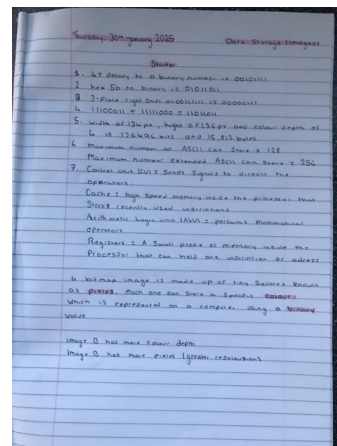 Thursday 30th January 2025 Data Storage (images)
Starter
1. 47 denary to a binary number is 00101111
2. hex 5b to binary is 01011011
3. 3-Place right Shift on 00111111 is 00000111
4. 11100011 + 11111000 = 11011011
5. width of 134px, hight of 236px and colour depth of
4 is 126496 bits and 15,812 bytes
6. Maximum number an ASCII can Store = 128
Maximum number Extended Ascii can Store = 256
7. Control unit (CU) = Sends Signals to direct the
operators.
Cache = high Speed memory inside the processor that
Stores recently used instructions
Arithmetic Logic unit (ALU) = performs mathmatical
operators
Registers = A Small piece of memory inside the
Processor that can hold one instruction or adress
a bitmap image is made up of tiny Squares known
as pixles. each one can Store a Specific colour
Which is represented on a computer using a binary
value
Image B has more Colour depth
Image B has more Pixles (greater resolution)